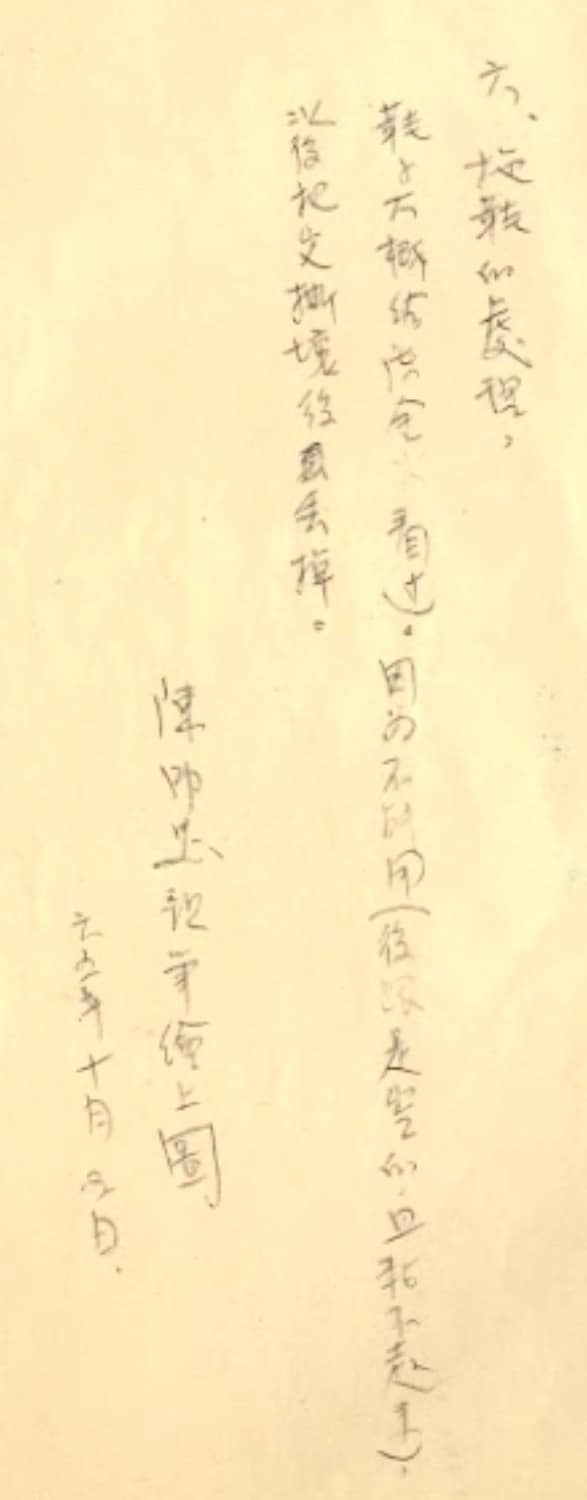 六、拖鞋的處理，
鞋子大概給看過。因為不能用(後跟是空的，且粘不起來)，
以後把它撕壞後再丟掉。
陳明忠親筆繪上圖
六五年十月五日.